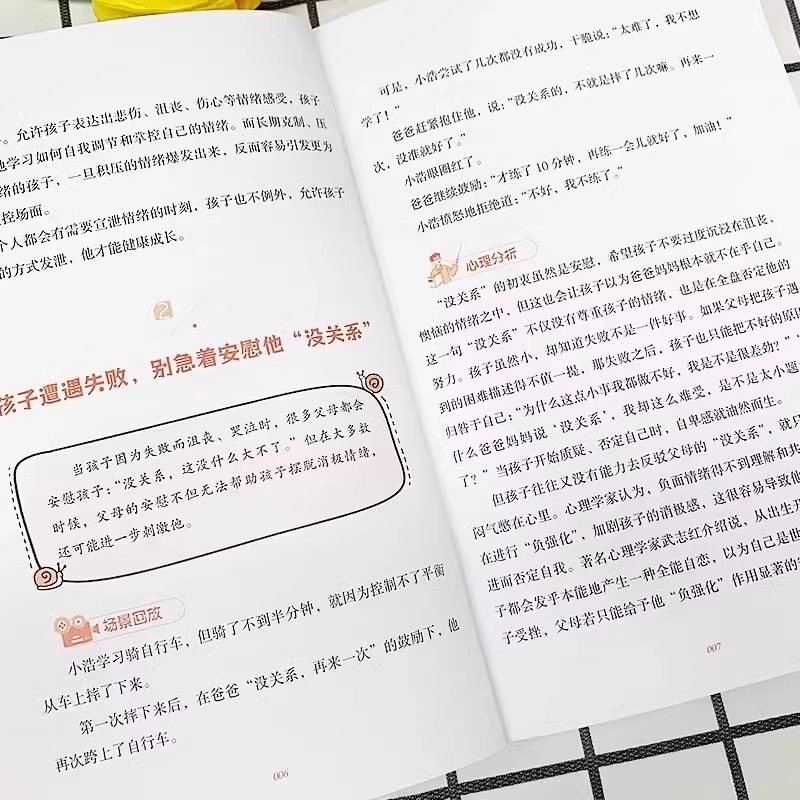 。允许孩子表达出悲伤、沮丧、伤心等情绪感受，孩子
他学习如何自我调节和掌控自己的情绪。而长期克制、压
绪的孩子，一旦积压的情绪爆发出来，反而容易引发更为
控场面。
个人都会有需要宣泄情绪的时刻，孩子也不例外，允许孩子
的方式发泄，他才能健康成长。
2
孩子遭遇失败，别急着安慰他“没关系”
当孩子因为失败而沮丧、哭泣时，很多父母都会
安慰孩子：“没关系，这没什么大不了。”但在大多数
时候，父母的安慰不但无法帮助孩子摆脱消极情绪，
还可能进一步刺激他。
场景回放
小浩学习骑自行车，但骑了不到半分钟，就因为控制不了平衡
从车上摔了下来。
第一次摔下来后，在爸爸“没关系，再来一次”的鼓励下，他
再次跨上了自行车。
006
可是，小浩尝试了几次都没有成功，干脆说：“太难了，我不想
学了！”
爸爸赶紧抱住他，说：“没关系的，不就是摔了几次嘛。再来一
次，没准就好了。”
小浩眼圈红了。
爸爸继续鼓励：“才练了10分钟，再练一会儿就好了，加油！”
小浩愤怒地拒绝道：“不好，我不练了。”
心理分析
“没关系”的初衷虽然是安慰，希望孩子不要过度沉浸在沮丧、
懊恼的情绪之中，但这也会让孩子以为爸爸妈妈根本就不在乎自己。
这一句“没关系”不仅没有尊重孩子的情绪，也是在全盘否定他的
努力。孩子虽然小，却知道失败不是一件好事。如果父母把孩子遇
到的困难描述得不值一提，那失败之后，孩子也只能把不好的原因
归咎于自己：“为什么这点小事我都做不好，我是不是很差劲？”
什么爸爸妈妈说‘没关系’，我却这么难受，是不是太小题
了？”当孩子开始质疑、否定自己时，自卑感就油然而生。
但孩子往往又没有能力去反驳父母的“没关系”，就只
闷气憋在心里。心理学家认为，负面情绪得不到理解和共
在进行“负强化”，加剧孩子的消极感，这很容易导致他
进而否定自我。著名心理学家武志红介绍说，从出生开
子都会发乎本能地产生一种全能自恋，以为自己是世
子受挫，父母若只能给予他“负强化”作用显著的
007